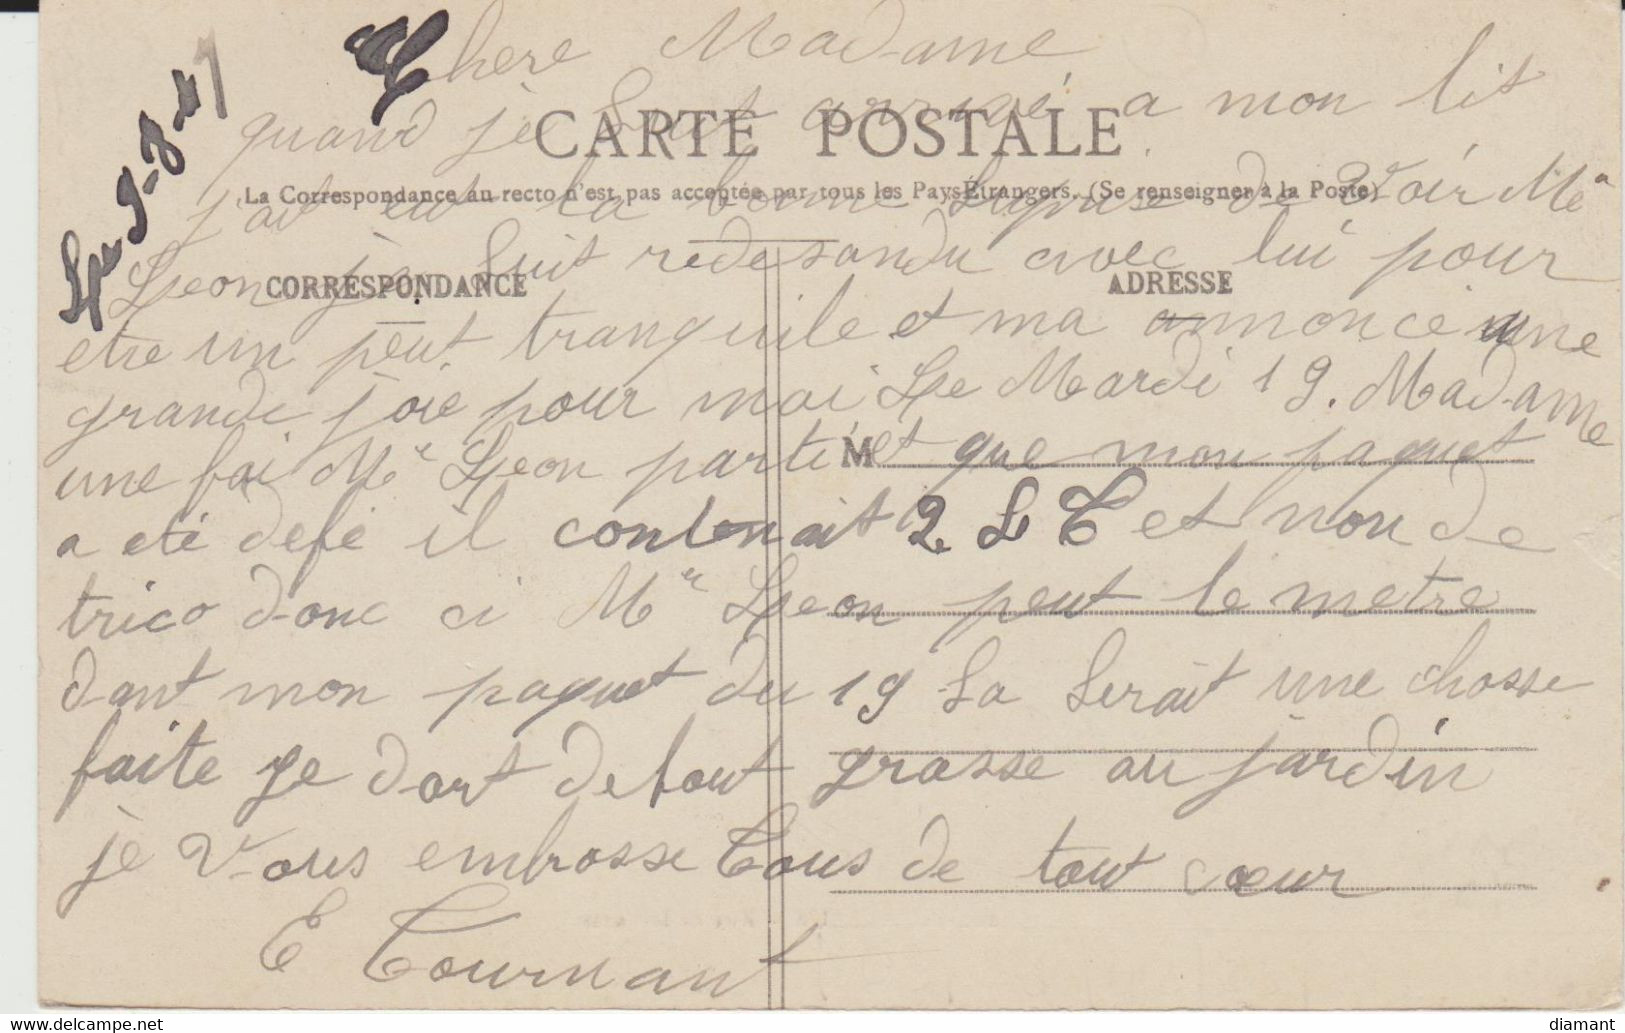 Chere Madame
quand je suit arrivé a mon lit
CARTE POSTALE
La Correspondance au recto n'est pas acceptée par tous les Pays Étrangers. (Se renseigner à la Poste)
j'ait eut la bonne de Voir Mr
Leon je suit redesandu avec lui pour
CORRESPONDANCE
ADRESSE
etre un peut tranquile et ma annonce une
grande joie pour moi Le Mardi 19. Madame
une foi Mr Leon parti et que mon paquet
M
a eté defé il contenait 2 L T et non de
trico donc ci Mr Leon peut le metre
dant mon paquet du 19 sa serait une chosse
faite je dort debout grasse au jardin
je Vous embrosse Tous de tout cœur
E Tournant
diamant